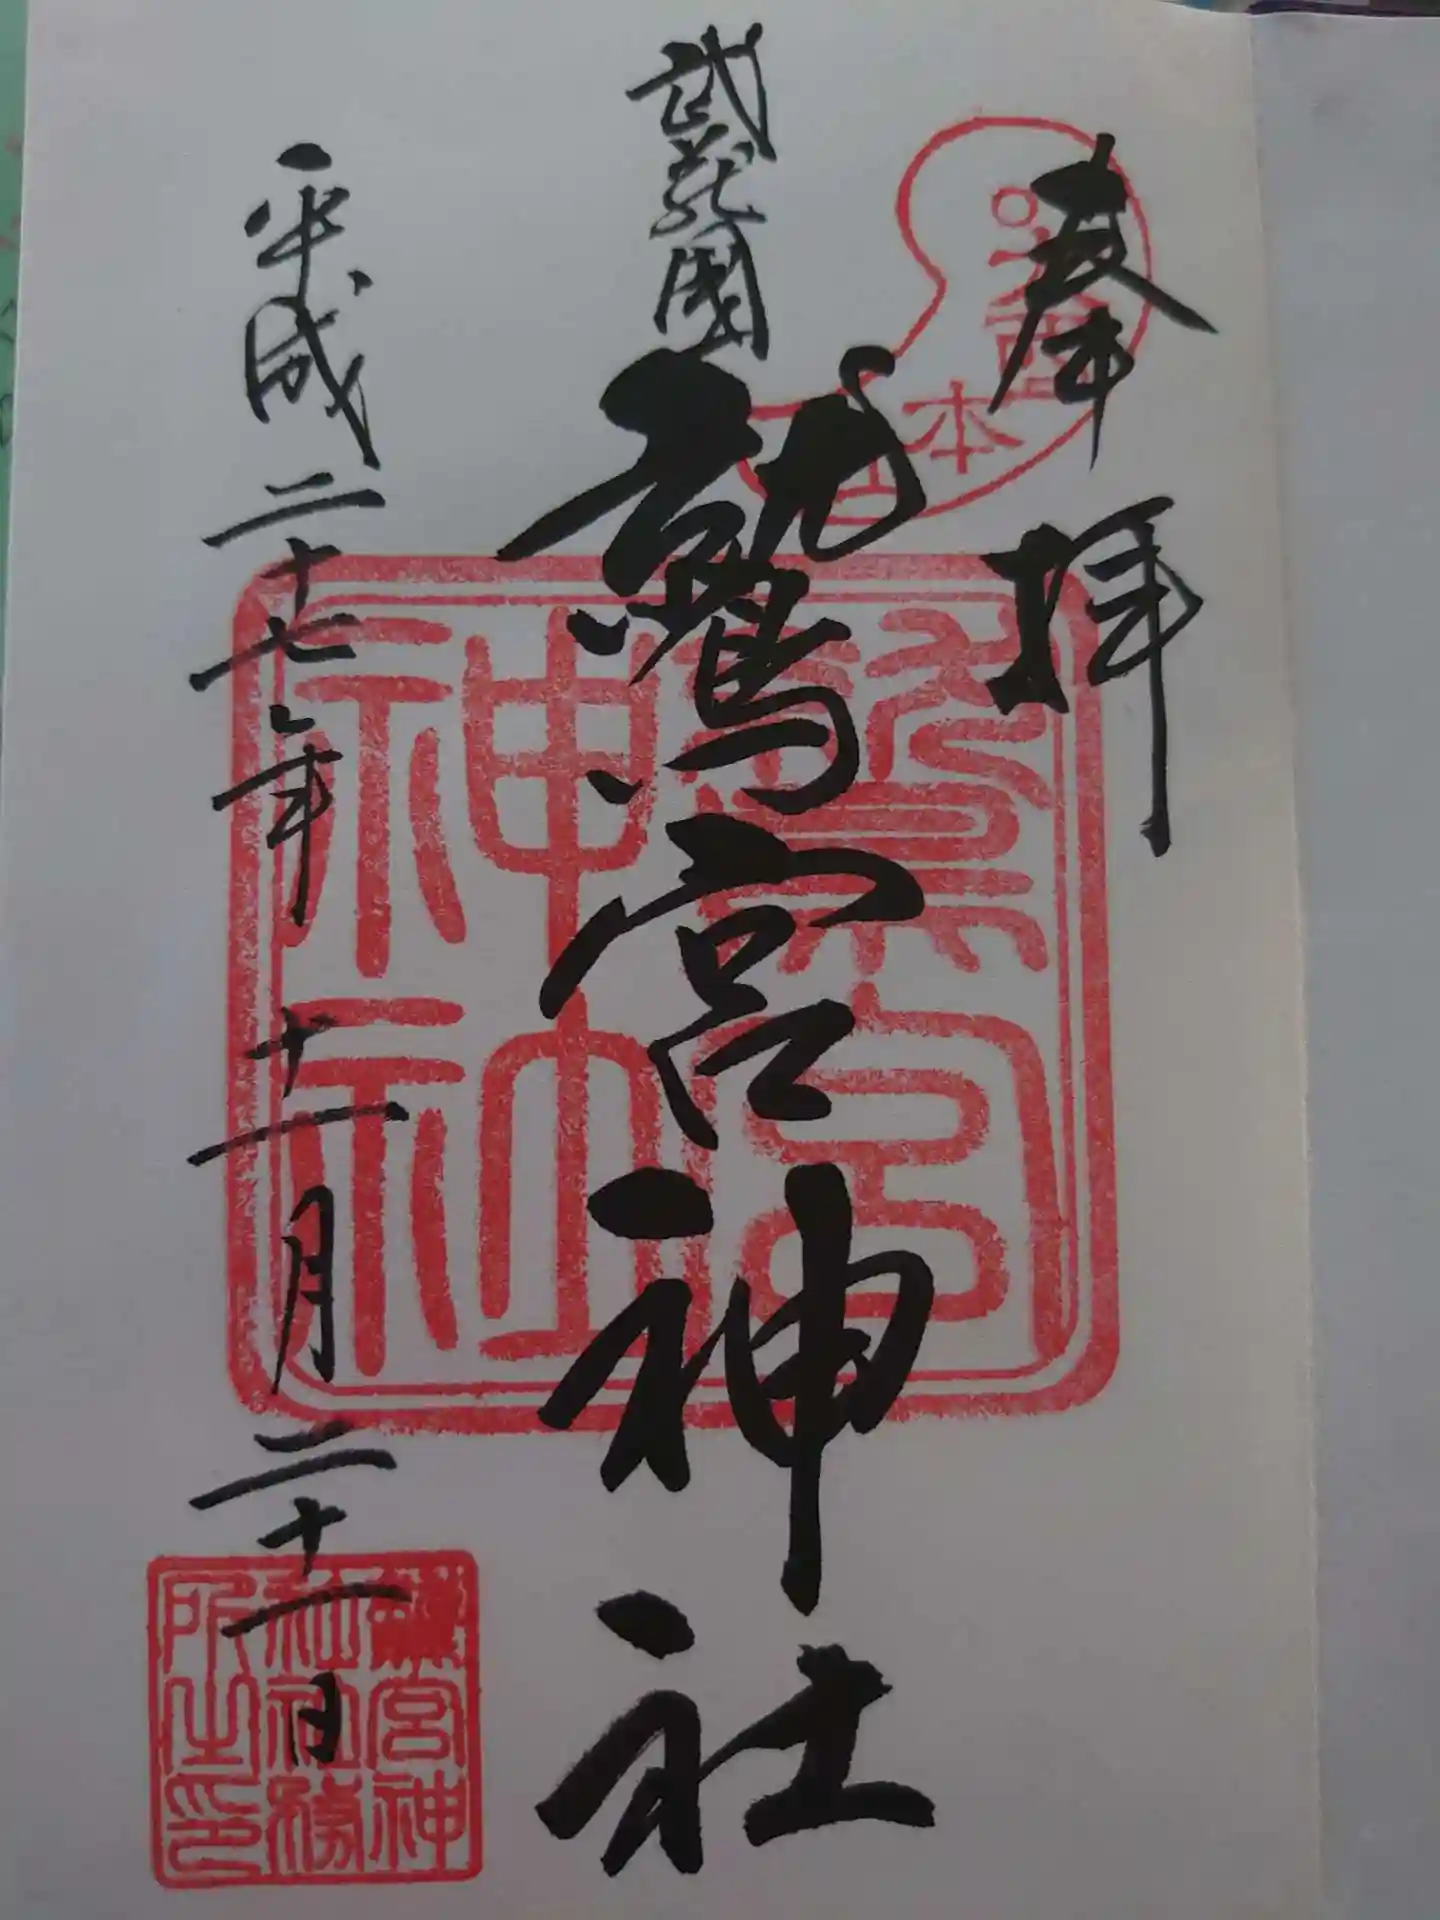 奉拝
武蔵國
鷲宮神社
平成二十七年十一月二十一日
鷲宮神社
鷲宮神社社務所之印